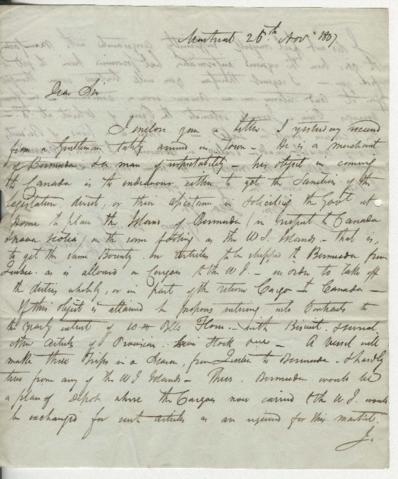 Montreal 26th Novr 1807
Dear Sir
I enclose you a letter I yesterday received
from a Gentleman lately arrived in town. He is a merchant
of Bermuda & a man of respectability - his object in coming
to Canada is to endeavour either to get the Sanction of the
Legislature thereof, or their assistance in Soliciting the Govt at
Home to place the Islands of Bermuda (in respect to Canada
& Nova Scotia) on the same footing as the W.I. Islands - that is,
to get the same Bounty on Articles to be shipped to Bermuda from
Quebec as is allowed on Cargoes to the W.I. - in order to take off
the duties wholly, or in part of the return Cargo to Canada -
If this object is attained he proposes entering into Contracts to
the yearly extent of Blls Flour - with Biscuit & several
other Articles of Provision Stock - A vessel will
make three trips in a Season from Quebec to Bermuda & hardly
two from any of the W.I. Islands - Thus Bermuda would be
a place of depot where the Cargoes now carried to the W.I. would
be exchanged for such articles as are required for this market.